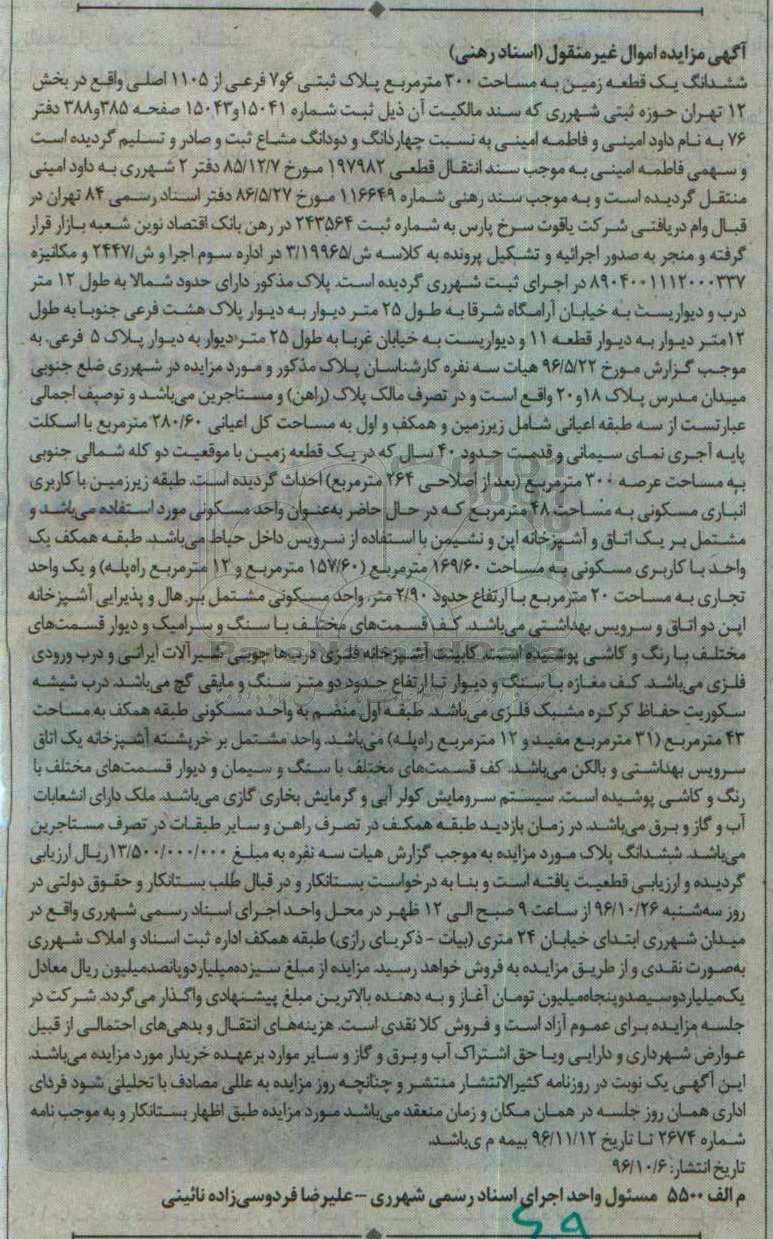 آگهی مزایده اموال غیرمنقول (اسناد رهنی)
ششدانگ یک قطعه زمین به مساحت ۳۰۰ مترمربع پلاک ثبتی ۶و۷ فرعی از ۱۱۰۵ اصلی واقع در بخش
۱۲ تهران حوزه ثبتی شهرری که سند مالکیت آن ذیل ثبت شماره ۱۵۰۴۱و۱۵۰۴۳ صفحه ۳۸۵و۳۸۸ دفتر
۷۶ به نام داود امینی و فاطمه امینی به نسبت چهاردانگ و دودانگ مشاع ثبت و صادر و تسلیم گردیده است
و سهمی فاطمه امینی به موجب سند انتقال قطعی ۱۹۷۹۸۲ مورخ ۸۵/۱۲/۷ دفتر ۲ شهرری به داود امینی
منتقل گردیده است و به موجب سند رهنی شماره ۱۱۶۶۴۹ مورخ ۸۶/۵/۲۷ دفتر اسناد رسمی ۸۴ تهران در
قبال وام دریافتی شرکت یاقوت سرخ پارس به شماره ثبت ۲۴۳۵۶۴ در رهن بانک اقتصاد نوین شعبه بازار قرار
گرفته و منجر به صدور اجرائیه و تشکیل پرونده به کلاسه ش/۳/۱۹۹۶۵ در اداره سوم اجرا و ش/۲۴۴۷ و مکانیزه
۸۹۰۴۰۰۱۱۱۲۰۰۰۳۳۷ در اجرای ثبت شهرری گردیده است. پلاک مذکور دارای حدود شمالا به طول ۱۲ متر
درب و دیواریست به خیابان آرامگاه شرقا به طول ۲۵ متر دیوار به دیوار پلاک هشت فرعی جنوبا به طول
۱۲متر دیوار به دیوار قطعه ۱۱ و دیواریست به خیابان غربا به طول ۲۵ متر دیوار به دیوار پلاک ۵ فرعی. به
موجب گزارش مورخ ۹۶/۵/۲۲ هیات سه نفره کارشناسان پلاک مذکور و مورد مزایده در شهرری ضلع جنوبی
میدان مدرس پلاک ۱۸و۲۰ واقع است و در تصرف مالک پلاک (راهن) و مستاجرین میباشد و توصیف اجمالی
عبارتست از سه طبقه اعیانی شامل زیرزمین و همکف و اول به مساحت کل اعیانی ۲۸۰/۶۰ مترمربع با اسکلت
پایه آجری نمای سیمانی و قدمت حدود ۴۰ سال که در یک قطعه زمین با موقعیت دو کله شمالی جنوبی
به مساحت عرصه ۳۰۰ مترمربع (بعد از اصلاحی ۲۶۴ مترمربع) احداث گردیده است. طبقه زیرزمین با کاربری
انباری مسکونی به مساحت ۴۸ مترمربع که در حال حاضر به‌عنوان واحد مسکونی مورد استفاده می‌باشد و
مشتمل بر یک اتاق و آشپزخانه اپن و نشیمن با استفاده از سرویس داخل حیاط می‌باشد. طبقه همکف یک
واحد با کاربری مسکونی به مساحت ۱۶۹/۶۰ مترمربع (۱۵۷/۶۰ مترمربع و ۱۲ مترمربع راه‌پله) و یک واحد
تجاری به مساحت ۲۰ مترمربع با ارتفاع حدود ۲/۹۰ متر. واحد مسکونی مشتمل بر هال و پذیرایی آشپزخانه
اپن دو اتاق و سرویس بهداشتی می‌باشد. کف قسمت‌های مختلف با سنگ و سرامیک و دیوار قسمت‌های
مختلف با رنگ و کاشی پوشیده است. کابینت آشپزخانه فلزی درب‌ها چوبی شیرآلات ایرانی و درب ورودی
فلزی می‌باشد. کف مغازه با سنگ و دیوار تا ارتفاع حدود دو متر سنگ و مابقی گچ می‌باشد. درب شیشه
سکوریت حفاظ کرکره مشبک فلزی می‌باشد. طبقه اول منضم به واحد مسکونی طبقه همکف به مساحت
۴۳ مترمربع (۳۱ مترمربع مفید و ۱۲ مترمربع راه‌پله) می‌باشد. واحد مشتمل بر خرپشته آشپزخانه یک اتاق
سرویس بهداشتی و بالکن می‌باشد. کف قسمت‌های مختلف با سنگ و سیمان و دیوار قسمت‌های مختلف با
رنگ و کاشی پوشیده است. سیستم سرمایش کولر آبی و گرمایش بخاری گازی می‌باشد. ملک دارای انشعابات
آب و گاز و برق می‌باشد. در زمان بازدید طبقه همکف در تصرف راهن و سایر طبقات در تصرف مستاجرین
می‌باشد. ششدانگ پلاک مورد مزایده به موجب گزارش هیات سه نفره به مبلغ ۱۳/۵۰۰/۰۰۰/۰۰۰ریال ارزیابی
گردیده و ارزیابی قطعیت یافته است و بنا به درخواست بستانکار و در قبال طلب بستانکار و حقوق دولتی در
روز سه‌شنبه ۹۶/۱۰/۲۶ از ساعت ۹ صبح الی ۱۲ ظهر در محل واحد اجرای اسناد رسمی شهرری واقع در
میدان شهرری ابتدای خیابان ۲۴ متری (بیات - ذکریای رازی) طبقه همکف اداره ثبت اسناد و املاک شهرری
به‌صورت نقدی و از طریق مزایده به فروش خواهد رسید. مزایده از مبلغ سیزده‌میلیاردوپانصدمیلیون ریال معادل
یک‌میلیاردوسیصدوپنجاه‌میلیون تومان آغاز و به دهنده بالاترین مبلغ پیشنهادی واگذار می‌گردد. شرکت در
جلسه مزایده برای عموم آزاد است و فروش کلا نقدی است. هزینه‌های انتقال و بدهی‌های احتمالی از قبیل
عوارض شهرداری و دارایی ویا حق اشتراک آب و برق و گاز و سایر موارد برعهده خریدار مورد مزایده می‌باشد.
این آگهی یک نوبت در روزنامه کثیرالانتشار منتشر و چنانچه روز مزایده به عللی مصادف با تحلیلی شود فردای
اداری همان روز جلسه در همان مکان و زمان منعقد می‌باشد مورد مزایده طبق اظهار بستانکار و به موجب نامه
شماره ۲۶۷۴ تا تاریخ ۹۶/۱۱/۱۲ بیمه م ی‌باشد.
تاریخ انتشار: ۹۶/۱۰/۶
م الف ۵۵۰۰ مسئول واحد اجرای اسناد رسمی شهرری - علیرضا فردوسی‌زاده نائینی